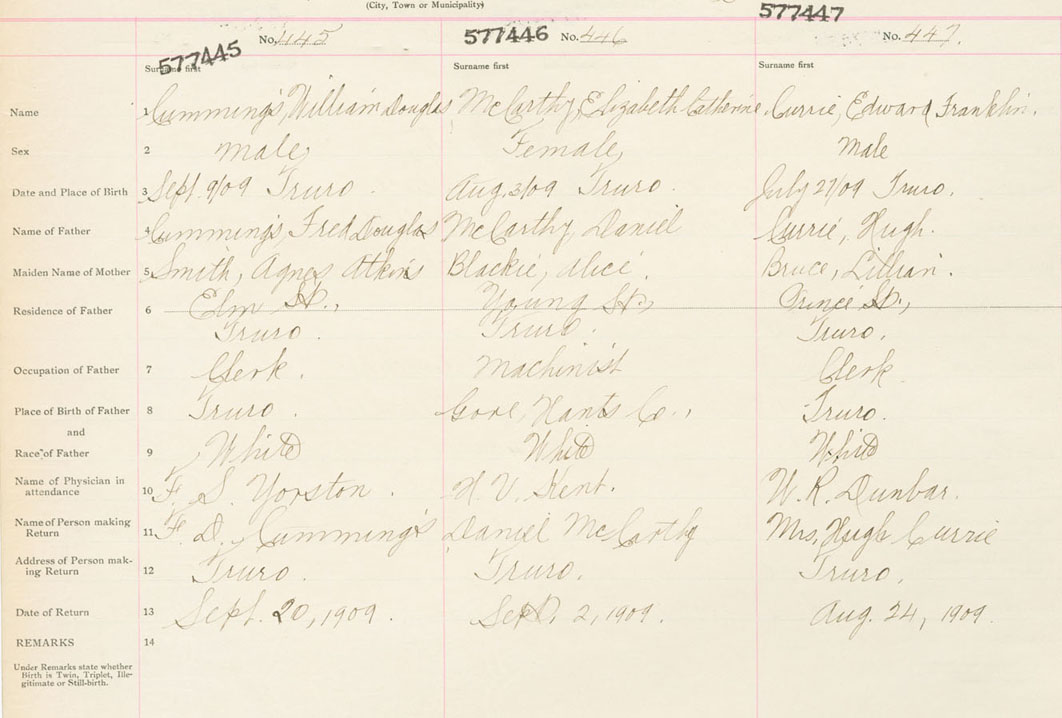 (City, Town or Municipality)
577445 No. 445 577446 No. 446 577447 No. 447.
Surname first Surname first Surname first
Name 1 Cummings, William Douglas McCarthy, Elizabeth Catherine. Currie, Edward Franklin.
Sex 2 Male, Female, Male
Date and Place of Birth 3 Sept. 9/09 Truro. Aug. 3/09 Truro. July 27/09 Truro.
Name of Father 4 Cummings, Fred Douglas McCarthy, Daniel Currie, Hugh.
Maiden Name of Mother 5 Smith, Agnes Atkins Blackie, Alice. Bruce, Lillian.
Residence of Father 6 Elm St., Young St., Prince St.,
Truro. Truro. Truro.
Occupation of Father 7 Clerk. Machinist Clerk.
Place of Birth of Father 8 Truro. Gore, Hants Co., Truro.
and
Race of Father 9 White White White
Name of Physician in
attendance 10 F. S. Yorston. H. V. Kent. W. R. Dunbar.
Name of Person making
Return 11 F. D. Cummings Daniel McCarthy Mrs. Hugh Currie
Address of Person mak-
ing Return 12 Truro. Truro. Truro.
Date of Return 13 Sept. 20, 1909. Sept. 2, 1909. Aug. 24, 1909.
REMARKS 14
Under Remarks state whether
Birth is Twin, Triplet, Ille-
gitimate or Still-birth.